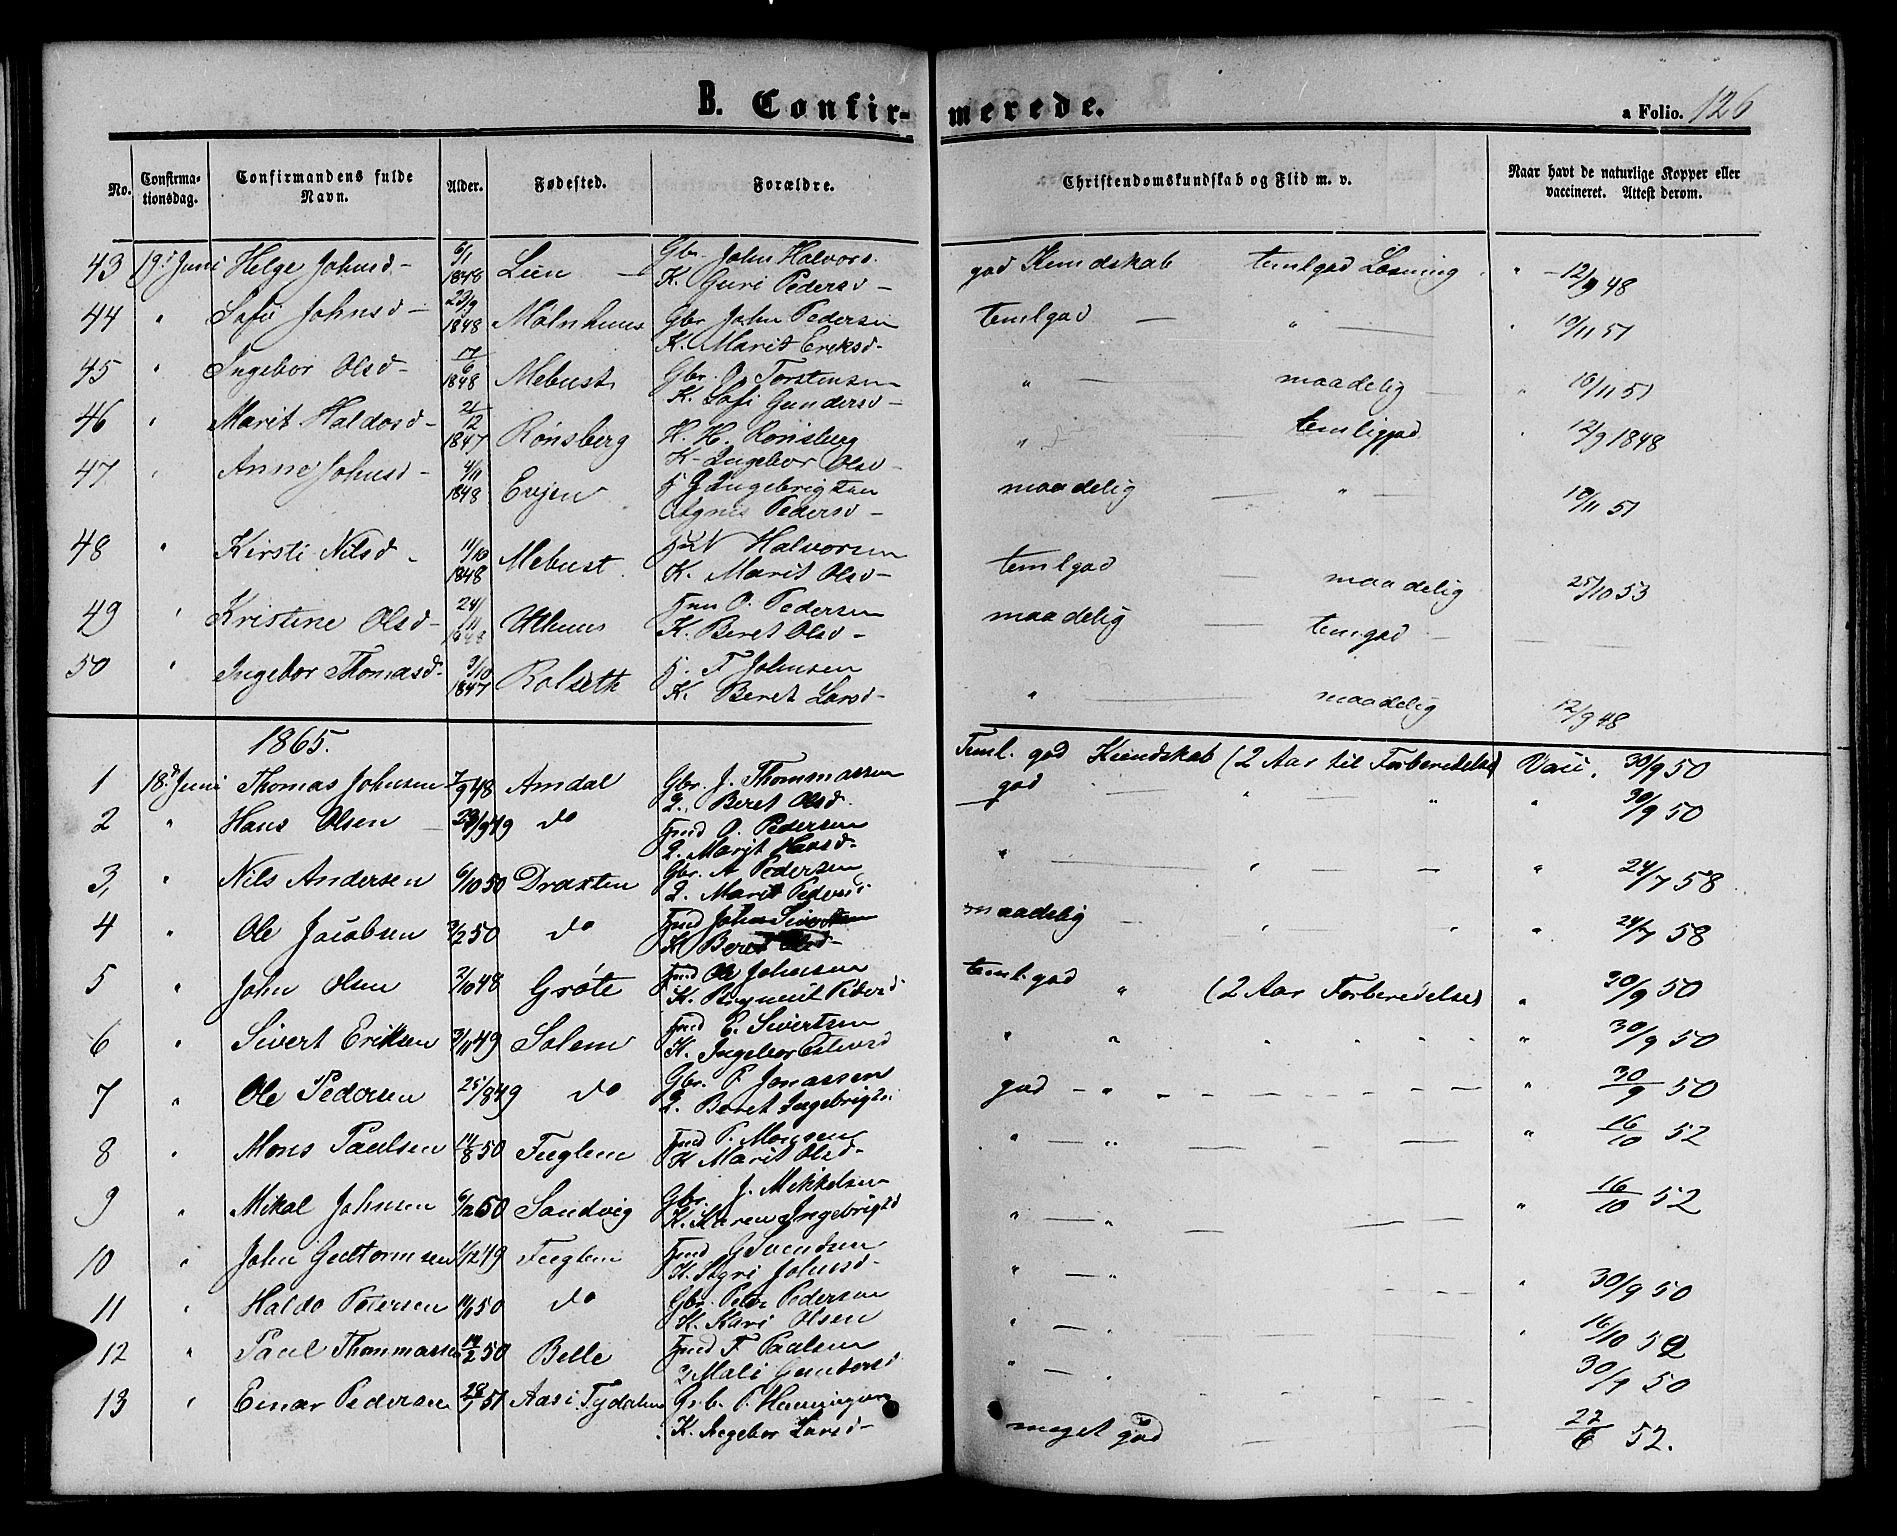 B. Confirmerede.
a Folio. 126
No. Confirmationsdag. Confirmandens fulde Navn. Alder. Fødested. Forældre. Christendomskundskab og Flid m. v. Naar havt de naturlige Kopper eller vaccineret. Attest derom.
43 19. Juni Helge Johnsd- 6/1 1848 Lien Gbr. John Halvors. K. Guri Pedersd- god Kundskab temlgod Læsning " 12/9 48
44 " Johnsd- 23/9 1848 Gbr John Pedersen K. Marit Eriksd- temlgod " 10/11 51
45 " Ingebor Olsd- 17/6 1848 Mebust Gbr. O. Torstensen K. Sofi Gundersd- " maadelig " 16/11 51
46 " Marit Haldosd- 21/12 1847 Rønsberg H. H. Rønsberg K. Ingebor Olsd- " temliggod 12/9 1848
47 " Anne Johnsd- 4/11 1848 Evjen J Ingebrigtsen Agnis Pedersd- maadelig " 10/11 51
48 " Kirsti Nilsd- 11/10 1848 Mebust N Halvorsen K. Marit Olsd- temlgod maadelig 25/10 53
49 " Kristine Olsd- 24/11 1848 Uthuus O. Pedersen K. Beret Olsd- maadelig temgod
50 " Ingebor Thomasd- 3/10 1847 Rolseth T Johnsen K. Beret Larsd- " maadelig 12/9 48
1865.
1 18. Juni Thomas Johnsen 7/9 48 Amdal Gbr. J. Thommassen Beret Olsd. Teml. god Kundskab (2 Aar til Forberedelse) Vacc. 30/9 50
2 " Hans Olsen 23/9 49 do Hmd O. Pedersen Marit Hansd- god " " " 30/9 50
3, " Nils Andersen 6/10 50 Draxten Gbr. A Pedersen Marit Pedersd " " " 24/7 58
4 " Ole Jacobsen 2/2 50 do Hmd K Beret maadelig " " " 24/7 58
5 " John Olsen 2/10 48 Grøte Hmd Ole Johnsen K. Pedersd teml. god " (2 Aar Forberedelse) " 30/9 50
6 " Sivert Eriksen 3/11 49 Selem Hmd E. Sivertsen K. Ingebor " " " " 30/9 50
7 " Ole Pedersen 25/8 49 do Gbr. P. Jonassen Beret Ingebrigts. god - " " 30/9 50
8 " Mons Paulsen 14/8 50 Fuglem Hmd P. Monsen K Marit Olsd- " " " 16/10 52
9 " Mikal Johnsen 6/12 50 Sandvig Gbr. J. Mikkelsen K. Karen Ingebrigtsd " " " 16/10 52
10 " John Guttormsen 1/12 49 Fuglem Hmd G Svendsen K. Sigri Johnsd- " " " 30/9 50
11 " Haldo Petersen 50 do Gbr. Peter Pedersen K. Kari Olsen " " " 16/10 52
12 " Paul Thommassen 50 Belle Hmd T. Paulsen Mali Gundersd " 30/9 50
13 " Einar Pedersen 28/1 51 Aas i Tydalen Grb. P. K. Ingebor Larsd- meget god 22/6 52.